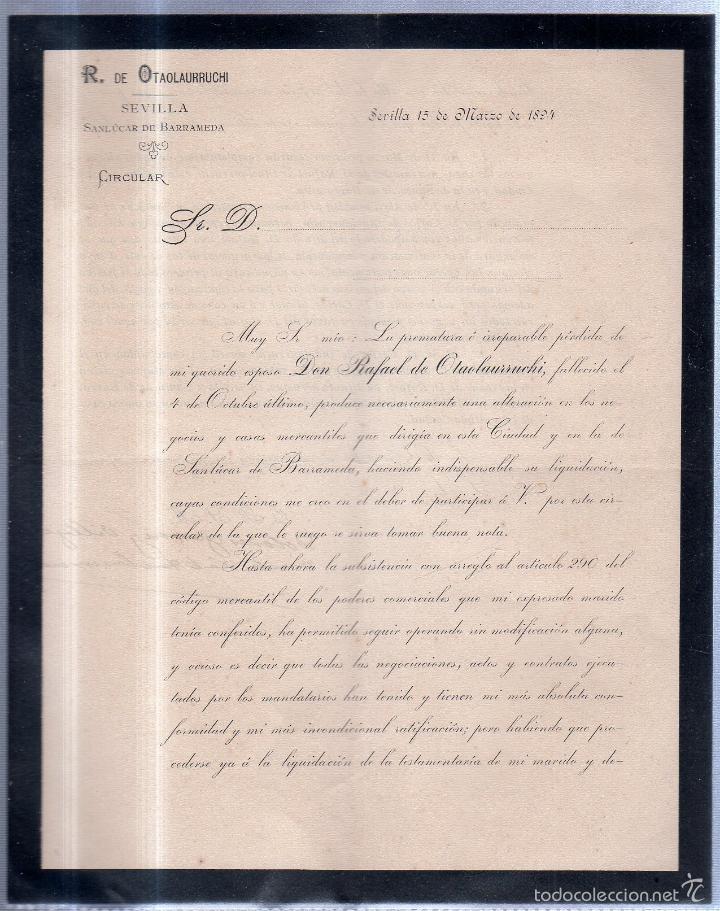 R. DE OTAOLAURRUCHI
SEVILLA
SANLÚCAR DE BARRAMEDA
CIRCULAR
Sevilla 15 de Marzo de 1894
Sr. D.
Muy Sr mio: La prematura é irreparable pérdida de
mi querido esposo Don Rafael de Otaolaurruchi, fallecido el
4 de Octubre último, produce necesariamente una alteración en los ne-
gocios y casas mercantiles que dirigia en esta Ciudad y en la de
Sanlúcar de Barrameda, haciendo indispensable su liquidación,
cuyas condiciones me creo en el deber de participar á V. por esta cir-
cular de la que le ruego se sirva tomar buena nota.
Hasta ahora la subsistencia con arreglo al articulo 290 del
código mercantil de los poderes comerciales que mi expresado marido
tenia conferidos, ha permitido seguir operando sin modificación alguna,
y ocioso es decir que todas las negociaciones, actos y contratos ejecu-
tados por los mandatarios han tenido y tienen mi más absoluta con-
formidad y mi más incondicional ratificación; pero habiendo que pro-
cederse ya á la liquidación de la testamentaria de mi marido y de-
todocoleccion.net